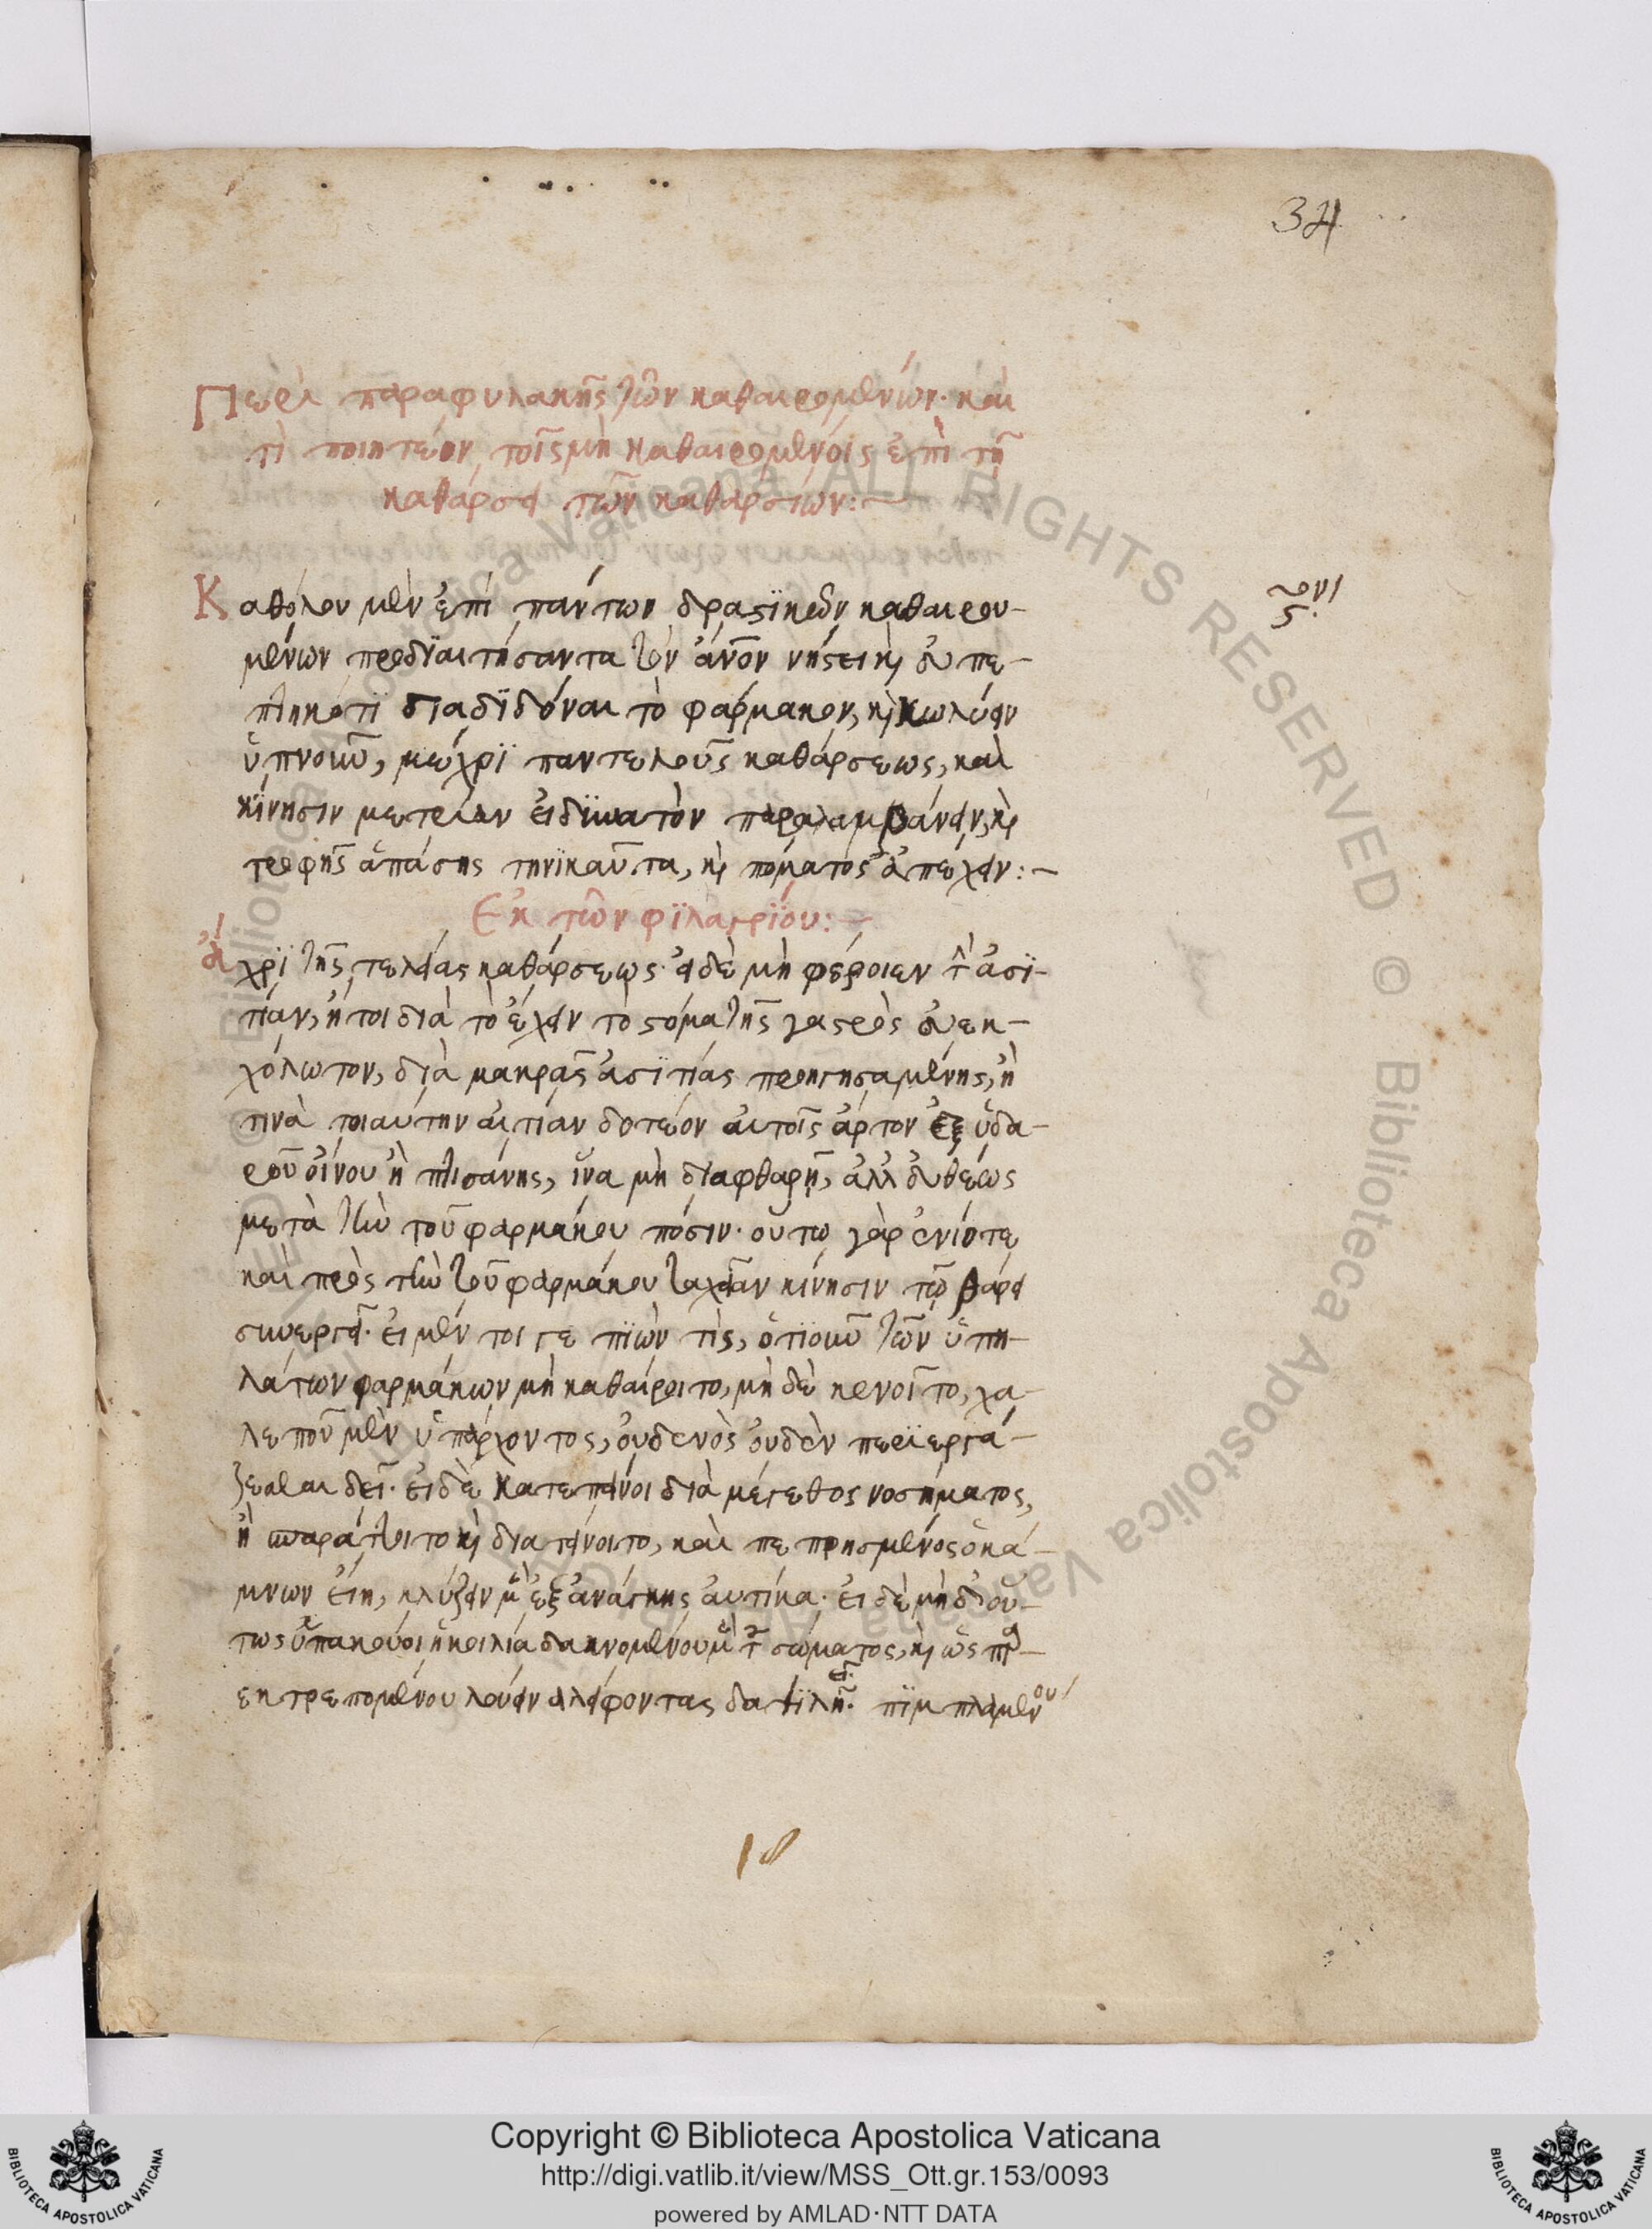 34
Περὶ παραφυλακῆς τῶν καθαιρομένων· καὶ
τί ποιητέον τοῖς μὴ καθαιρομένοις ἐπὶ τῇ
καθάρσει τῶν καθαρσίων:—
Καθόλου μὲν ἐπὶ πάντων δραστϊκῶν καθαιρου-
μένων προδϊαιτήσαντα τὸν ἄνον νήστει κ εὐπε-
πτηκότϊ διαδϊδόναι τὸ φάρμακον, κ κωλύειν
ὕπνουν, μέχρϊ παντελοῦς καθάρσεως, καὶ
κίνησιν μετρίαν εἰ δϋνατὸν παραλαμβάνειν, κ
τροφῆς ἁπάσης τηνϊκαῦτα, κ πόματος ἀπέχειν:—
Ἐκ τῶν φϊλαγρΐου:—
ἄχρϊ τῆς τελείας καθάρσεως· εἰ δὲ μὴ φέροιεν τ ἀσϊ-
τίαν, ἤτοι διὰ τὸ ἔχειν τὸ στόμα τῆς γαστρὸς εὐεκ-
χόλωτον, διὰ μακρᾶς ἀσϊτίας προηγησαμένης, ἢ
τινὰ τοιαύτην αἰτίαν δοτέον αὐτοῖς ἄρτον ἐξ ὑδα-
ροῦ οἴνου ἢ πτισάνης, ἵνα μὴ διαφθαρῇ, ἀλλ εὐθέως
μετὰ τὴν τοῦ φαρμάκου πόσιν· οὕτω γὰρ ἐνίοτε
καὶ πρὸς τὴν τοῦ φαρμάκου ταχεῖαν κίνησιν τῷ βάρει
συνεργεῖ· εἰ μέν τοι γε πϊών τὶς, ὁτϊοῦν τῶν ὑπη-
λάτων φαρμάκων μὴ καθαίροιτο, μὴ δὲ κενοῖτο, χα-
λεποῦ μὲν ὑπάρχοντος, οὐδενὸς οὐδὲν περϊεργά-
ζεσθαι δεῖ· εἰ δὲ κατεπείγοι διὰ μέγεθος νοσήματος,
ἢ ταράττοιτο κ διατείνοιτο, καὶ πεπρησμένος ὁ κά-
μνων εἴη, κλύζειν μ ἐξ ἀνάγκης αὐτίκα· εἰ δὲ μὴ δ οὕ-
τως ὑπακούοι ἡ κοιλία δακνομένου μ τ σώματος, κ ὡς
ἐκτρεπομένου λούειν ἀλείφοντας δαψϊλῆ· πϊμπλαμένου
18
Copyright © Biblioteca Apostolica Vaticana
http://digi.vatlib.it/view/MSS_Ott.gr.153/0093
powered by AMLAD·NTT DATA
BIBLIOTECA APOSTOLICA VATICANA
BIBLIOTECA APOSTOLICA VATICANA